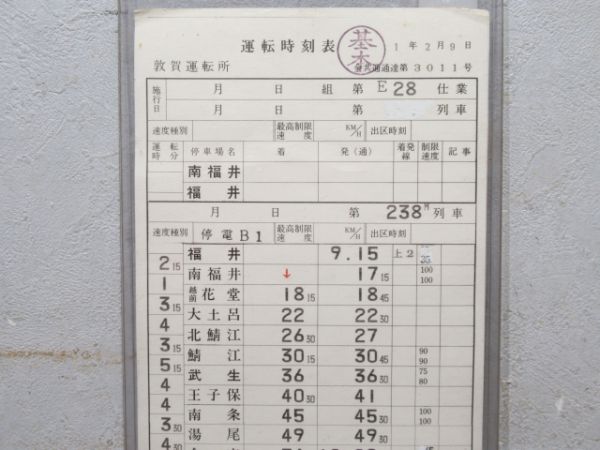 運転時刻表 基本 1年2月9日
敦賀運転所 達第3011号
施行日 月 日 組 第 E28 仕業
月 日 列車
速度種別 最高制限速度 KM/H 出区時刻
運転時分 停車場名 着 発(通) 着発線 制限速度 記事
南福井
福井
月 日 第 238M 列車
速度種別 停電B1 最高制限速度 KM/H 出区時刻
福井 9.15 上2 35
2 15 南福井 ↓ 17 15 100 100
1 越前花堂 18 15 18 45
3 15 大土呂 22 22 30
4 北鯖江 26 30 27
3 15 鯖江 30 15 30 45 90 90
5 15 武生 36 36 30 75 80
4 王子保 40 30 41
4 南条 45 45 30 100 100
3 30 湯尾 49 49 30
4 30